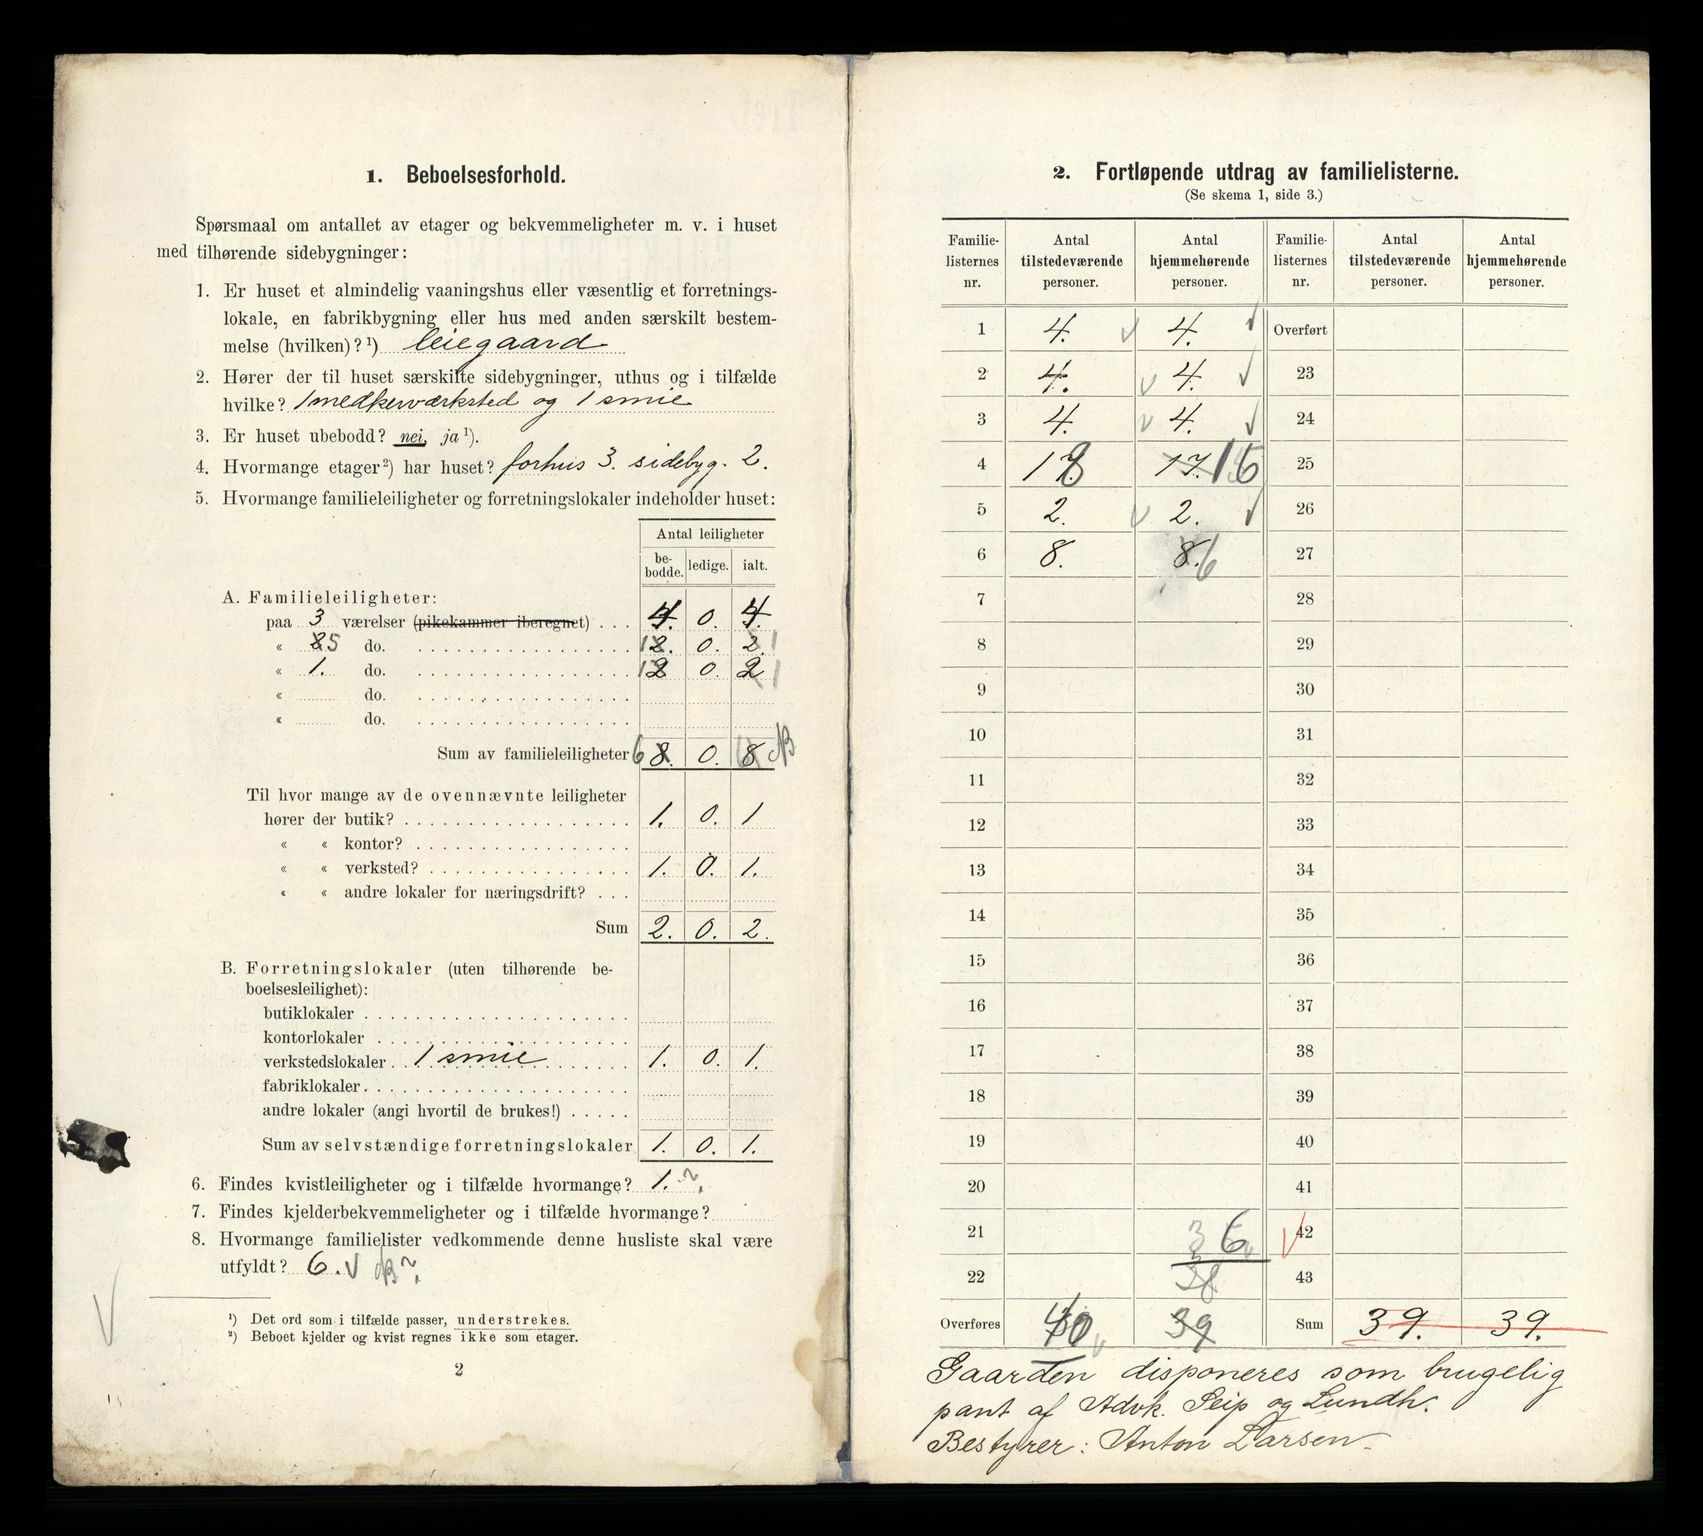 1. Beboelsesforhold.
Spørsmaal om antallet av etager og bekvemmeligheter m. v. i huset
med tilhørende sidebygninger:
1. Er huset et almindelig vaaningshus eller væsentlig et forretnings-
lokale, en fabrikbygning eller hus med anden særskilt bestem-
melse (hvilken)?¹) leiegaard
2. Hører der til huset særskilte sidebygninger, uthus og i tilfælde
hvilke? 1 snedkerværksted og 1 smie
3. Er huset ubebodd? nei, ja¹).
4. Hvormange etager²) har huset? forhus 3. sidebyg. 2.
5. Hvormange familieleiligheter og forretningslokaler indeholder huset:
Antal leiligheter
be-bodde. ledige. ialt.
A. Familieleiligheter:
paa 3 værelser (pikekammer iberegnet) . . . 4. 0. 4.
« 5 do. 1 2. 0. 2. 1
« 1. do. 1 2 0. 2 1
« do.
« do.
Sum av familieleiligheter 6 8. 0. 8
Til hvor mange av de ovennævnte leiligheter
hører der butik? 1. 0. 1
« « kontor?
« « verksted? 1. 0. 1.
« « andre lokaler for næringsdrift? . . .
Sum 2. 0. 2.
B. Forretningslokaler (uten tilhørende be-
boelsesleilighet):
butiklokaler
kontorlokaler
verkstedslokaler 1 smie 1. 0. 1.
fabriklokaler
andre lokaler (angi hvortil de brukes!)
Sum av selvstændige forretningslokaler 1. 0. 1.
6. Findes kvistleiligheter og i tilfælde hvormange? 1. ?
7. Findes kjelderbekvemmeligheter og i tilfælde hvormange?
8. Hvormange familielister vedkommende denne husliste skal være
utfyldt? 6. ?
¹) Det ord som i tilfælde passer, understrekes.
²) Beboet kjelder og kvist regnes ikke som etager.
2
2. Fortløpende utdrag av familielisterne.
(Se skema 1, side 3.)
Familie-listernes nr. Antal tilstedeværende personer. Antal hjemmehørende personer. Familie-listernes nr. Antal tilstedeværende personer. Antal hjemmehørende personer.
1 4. 4. Overført
2 4. 4. 23
3 4. 4. 24
4 18 17. 16 25
5 2. 2. 26
6 8. 8. 6 27
7 28
8 29
9 30
10 31
11 32
12 33
13 34
14 35
15 36
16 37
17 38
18 39
19 40
20 41
21 36 42
22 38 43
Overføres 40 39 Sum 39. 39.
Gaarden disponeres som brugelig
pant af Advk. Seip og Lundh.
Bestyrer: Anton Larsen